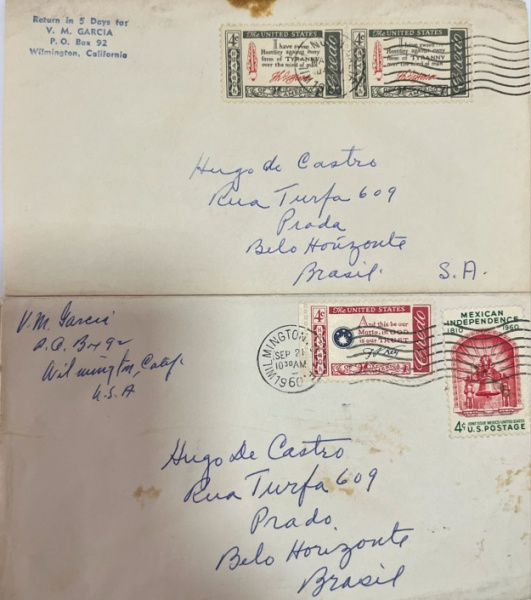 Return in 5 Days for
V. M. GARCIA
P. O. Box 92
Wilmington, California
4¢ The UNITED STATES
I have sworn
Hostility against every
form of TYRANNY
over the mind of man
Th Jefferson
Credo
4¢ The UNITED STATES
I have sworn
Hostility against every
form of TYRANNY
over the mind of man
Th Jefferson
Credo
Hugo de Castro
Rua Turfa 609
Prada
Belo Horizonte
Brasil S.A.
V.M. Garcia
P.O. Box 92
Wilmington, Calif
U.S.A
WILMINGTON,
SEP 21
10 30 AM
1960
4¢ The UNITED STATES
And this be our
Motto, in GOD
is our TRUST
Credo
MEXICAN
INDEPENDENCE
1810 1960
4¢ U.S. POSTAGE
Hugo De Castro
Rua Turfa 609
Prado
Belo Horizonte
Brasil